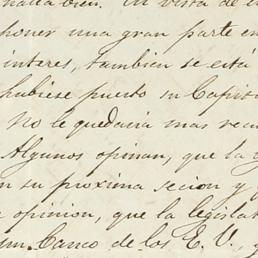 halla bien. En vista de
poner una gran parte en
interes, tambien se está
hubiese puesto su Capit
No le quedaria mas recu
Algunos opinan, que la
en su proxima secion y
opinion, que la legislat
un Banco de los E. U.,